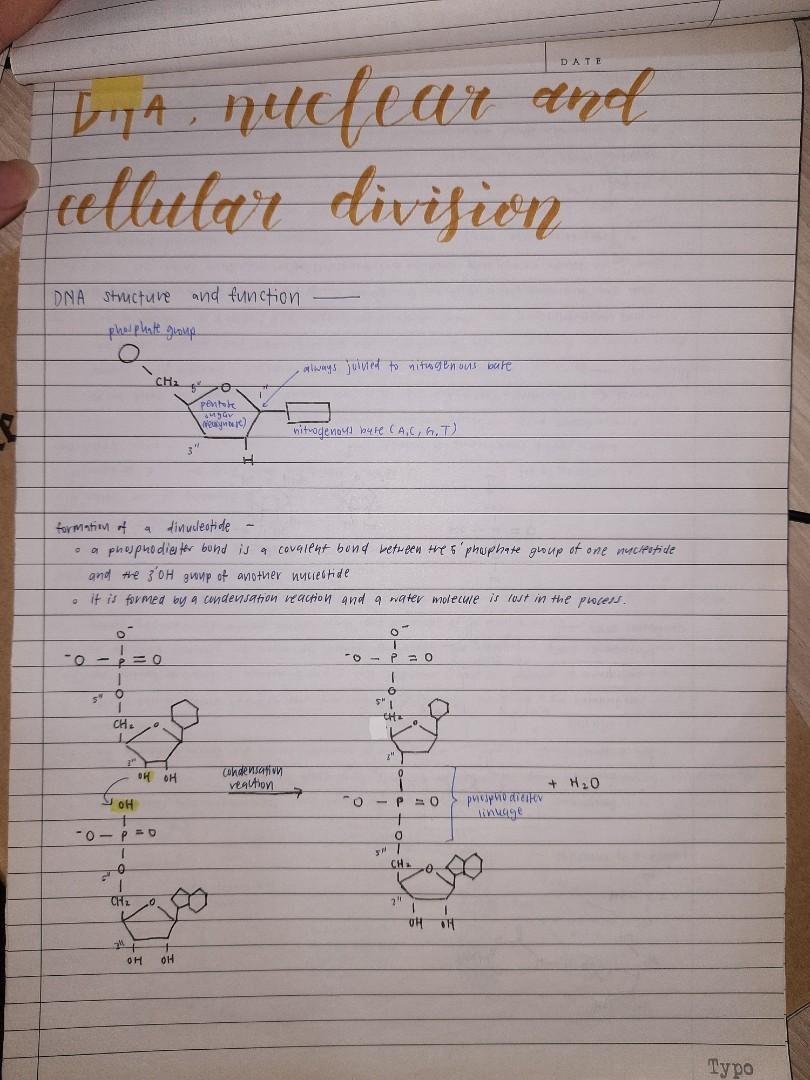 DATE
DNA, nuclear and
cellular division
DNA structure and function —
phosphate group
always joined to nitrogenous base
CH₂ 5" O 1"
pentose
sugar
(deoxyribose)
nitrogenous base (A, C, G, T)
3"
H
formation of a dinucleotide –
• a phosphodiester bond is a covalent bond between the 5' phosphate group of one nucleotide
and the 3'OH group of another nucleotide
• it is formed by a condensation reaction and a water molecule is lost in the process.
O⁻
⁻O — P = O
O
5"
CH₂ O
3"
OH OH
OH
⁻O — P = O
O
5"
CH₂ O
3"
OH OH
condensation
reaction
O⁻
⁻O — P = O
O
5"
CH₂ O
3"
O
⁻O — P = O
O
5"
CH₂ O
3"
OH OH
phosphodiester
linkage
+ H₂O
Typo